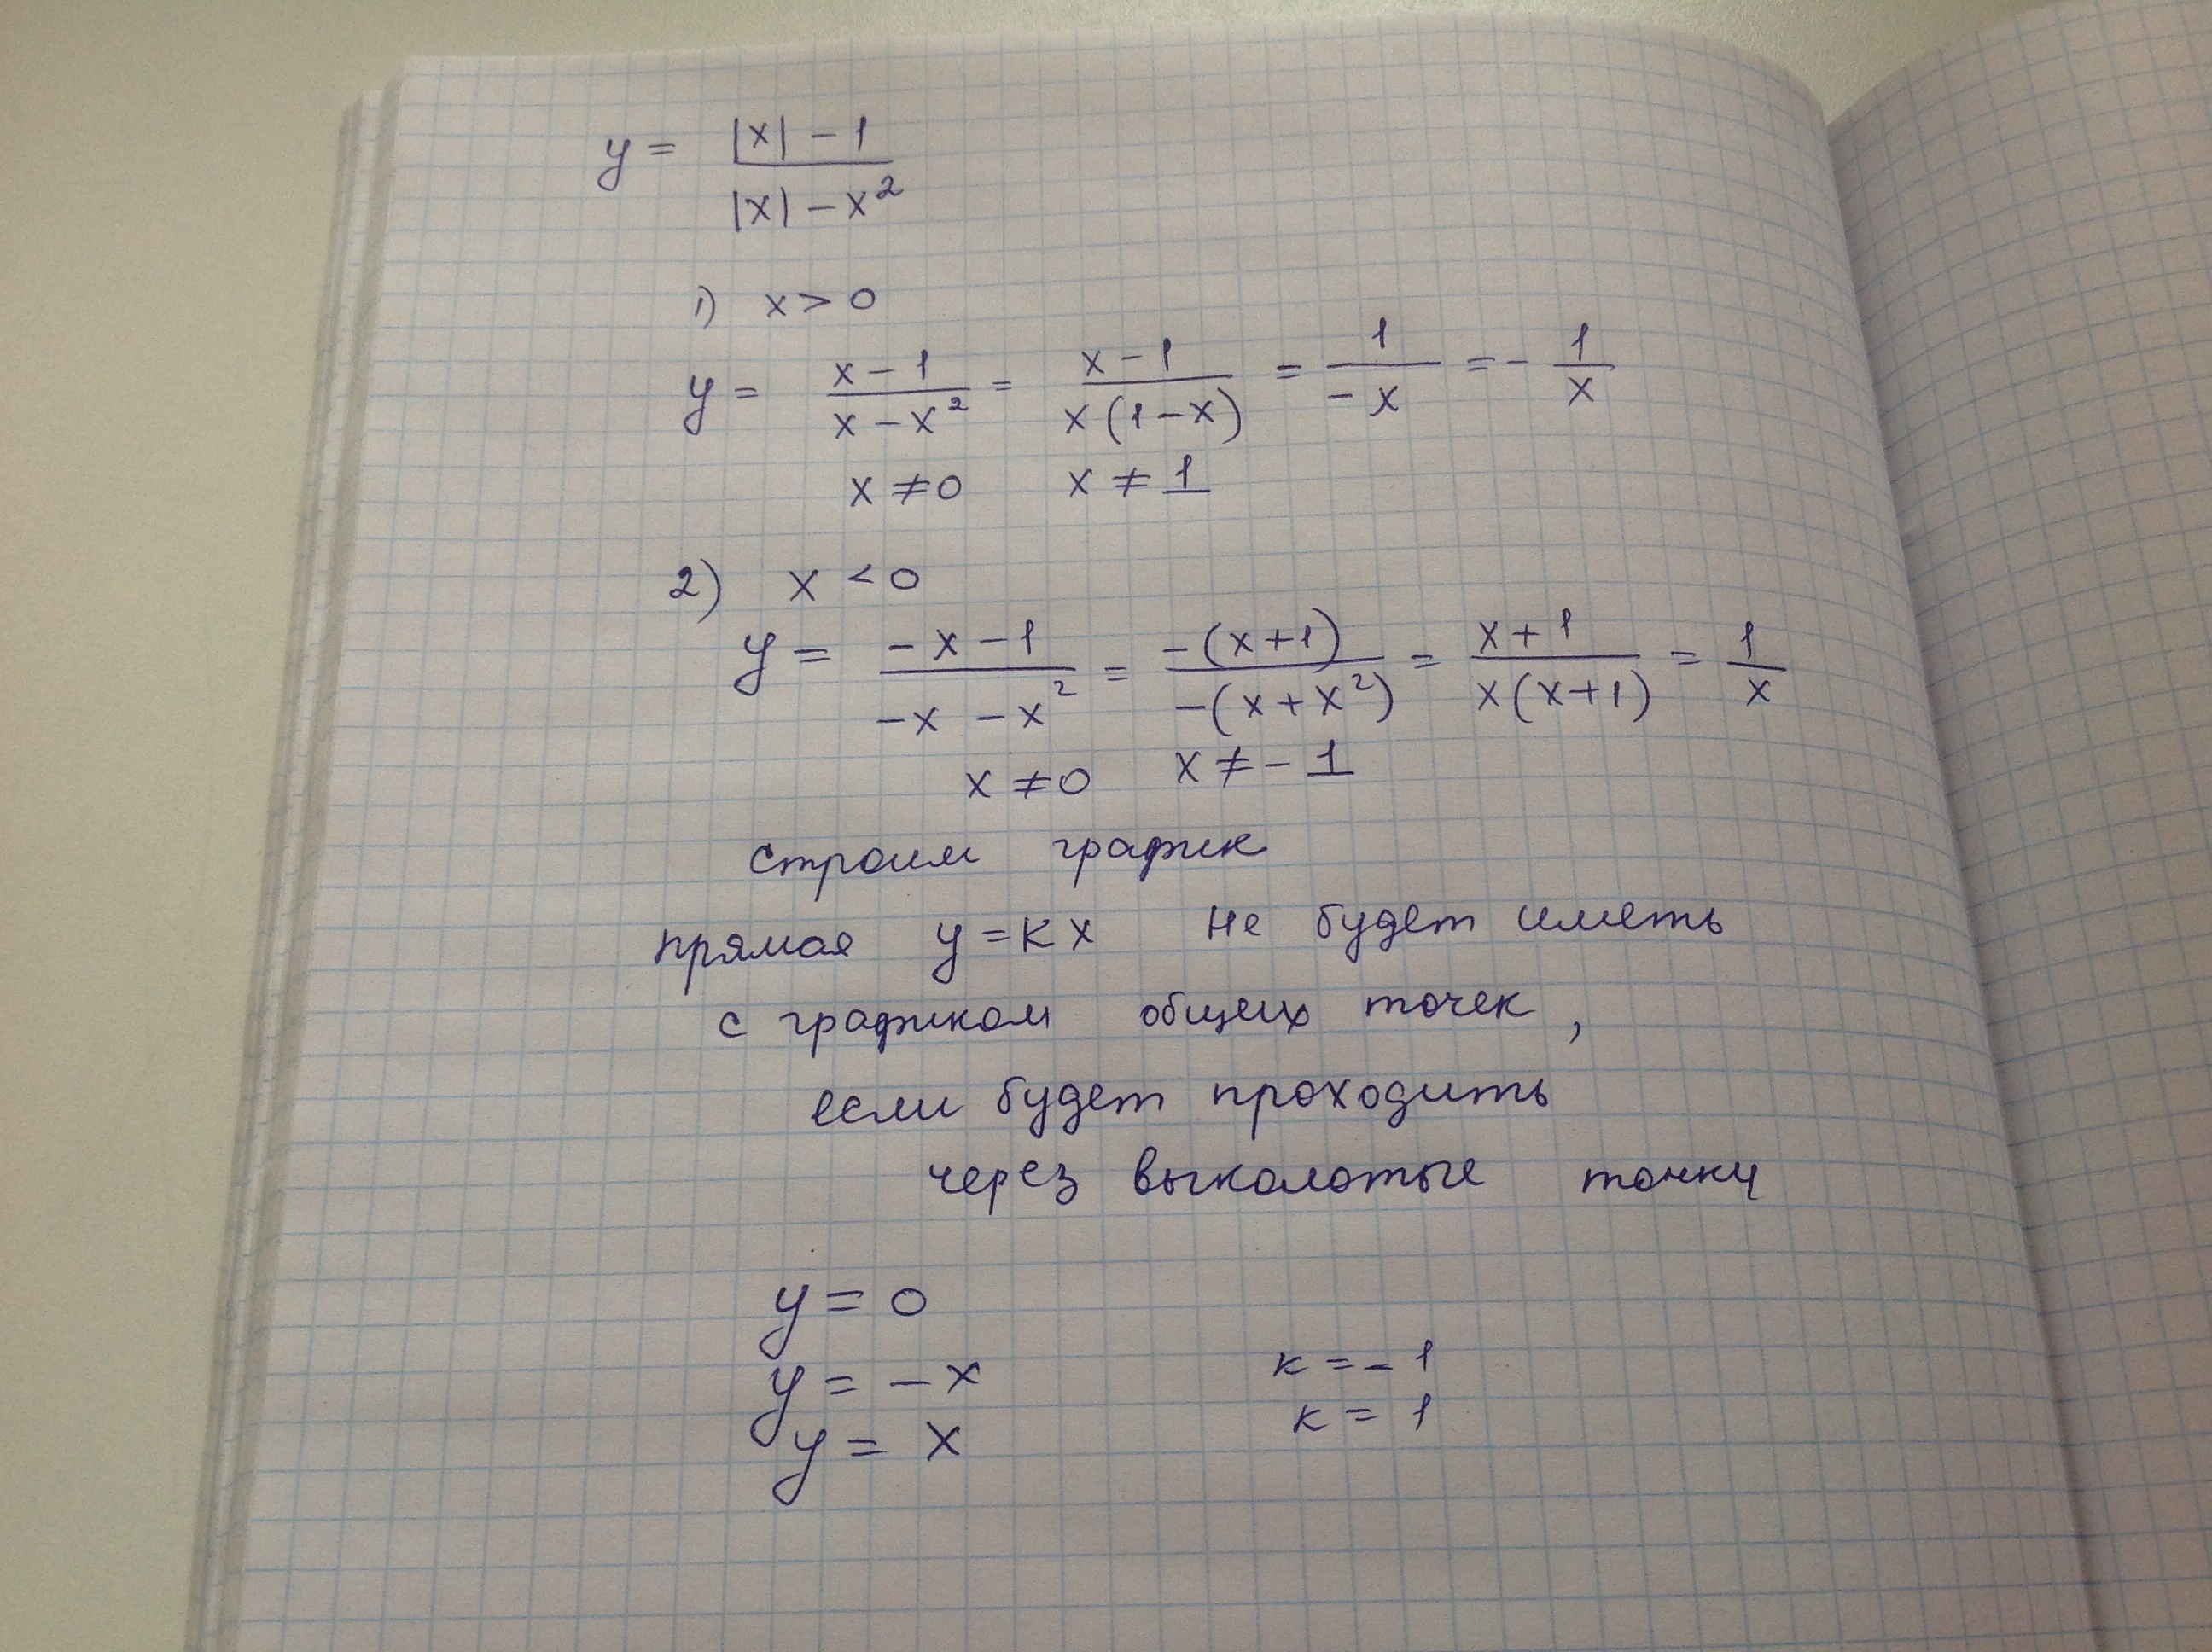 y = (|x| - 1)/(|x| - x²)
1) x > 0
y = (x - 1)/(x - x²) = (x - 1)/(x(1 - x)) = 1/(-x) = - 1/x
x ≠ 0 x ≠ 1
2) x < 0
y = (-x - 1)/(-x - x²) = (-(x + 1))/(-(x + x²)) = (x + 1)/(x(x + 1)) = 1/x
x ≠ 0 x ≠ - 1
строим график
прямая y = kx не будет иметь
с графиком общих точек,
если будет проходить
через выколотые точки
y = 0
y = - x k = - 1
y = x k = 1